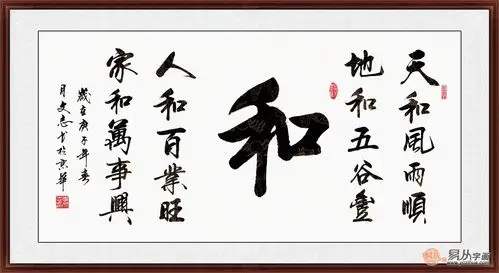 天和風雨順
地和五谷豐
和
人和百業旺
家和萬事興
歲在庚子年春
月文志書於京華
易从字画
www.yczihua.com